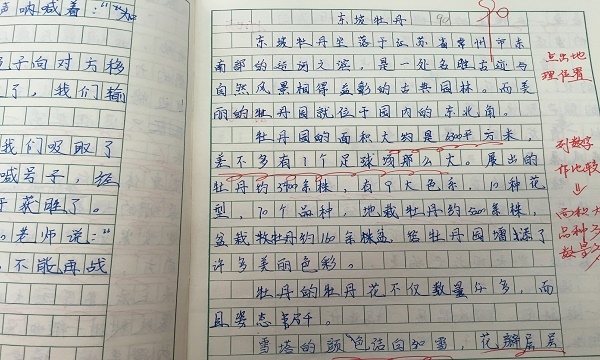 声呐喊着：“加
子向对方移
了，我们输
我们吸取了
喊号子，
于获胜了。
老师说：“
不能再战
东坡牡丹 90
东坡牡丹坐落于江苏省常州市东
南部的 ，是一处名胜古迹与
自然风景相得益彰的古典园林。而美
丽的牡丹园就位于园内的东北角。
点出地
理位置
牡丹园的面积大约是6300平方米，
差不多有1个足球场那么大。展出的
牡丹约 余株，有9大色系，10种花
型，70个品种，地栽牡丹约500余株，
盆栽牡丹约160余株盆，给牡丹园增添了
许多美丽色彩。
列数字
作比较
面积大
品种多
牡丹的牡丹花不仅数量 多，而
且姿态
雪塔的颜色洁白如雪，花瓣层层